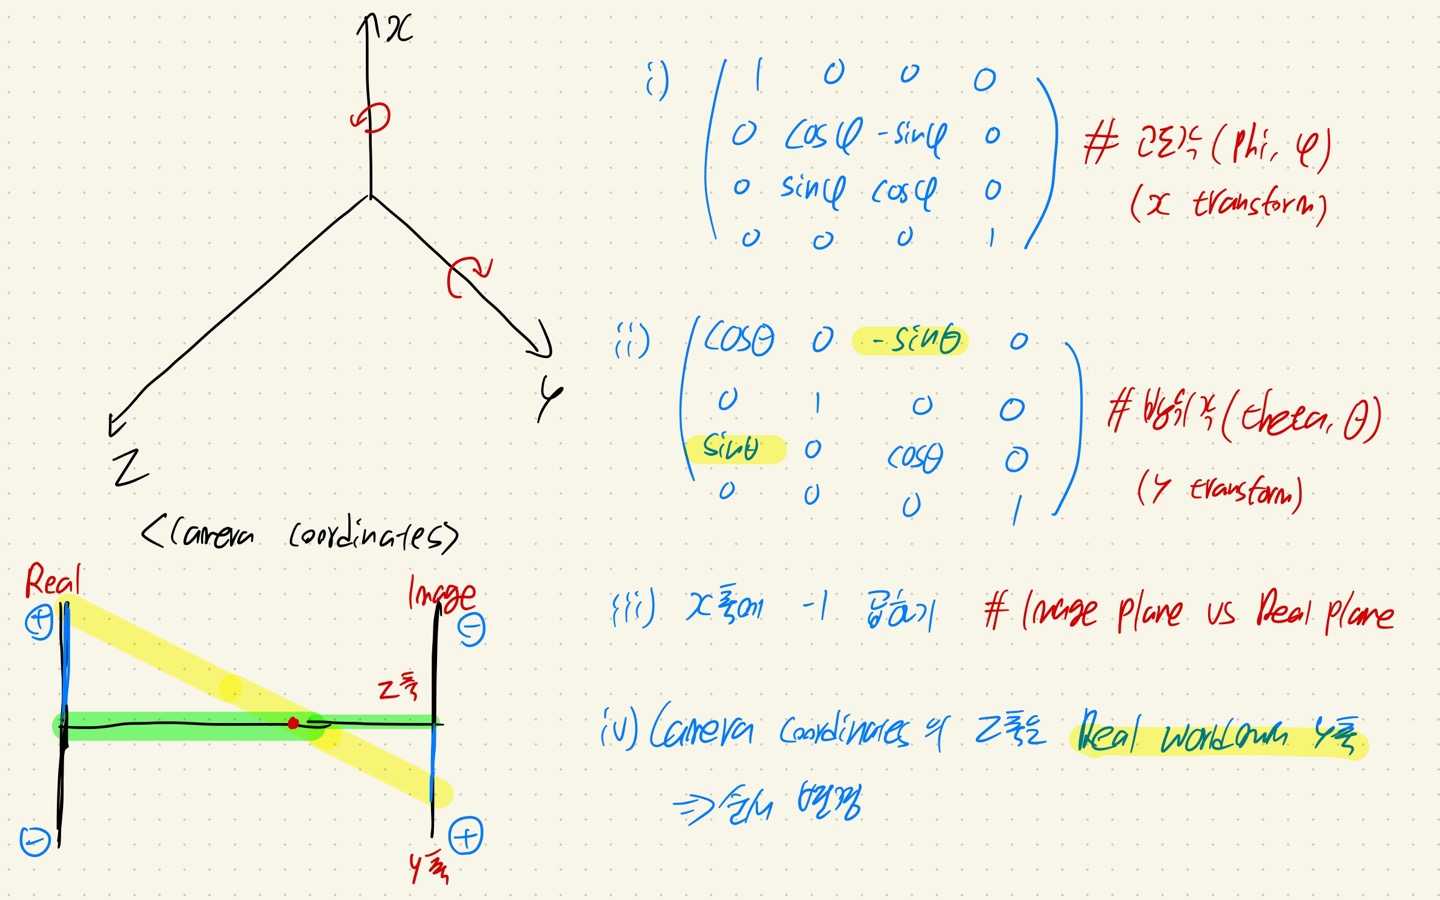 x
Y
Z
<Camera coordinates>
Real
Image
+
-
z축
-
+
y축
i)
1 0 0 0
0 cosφ -sinφ 0
0 sinφ cosφ 0
0 0 0 1
# 고도각(phi, φ)
(x transform)
ii)
cosθ 0 -sinθ 0
0 1 0 0
sinθ 0 cosθ 0
0 0 0 1
# 방위각(theta, θ)
(Y transform)
iii) x축에 -1 곱하기 # Image plane vs Real plane
iv) Camera coordinates의 Z축은 Real world에서 y축
⇒ 순서 변경